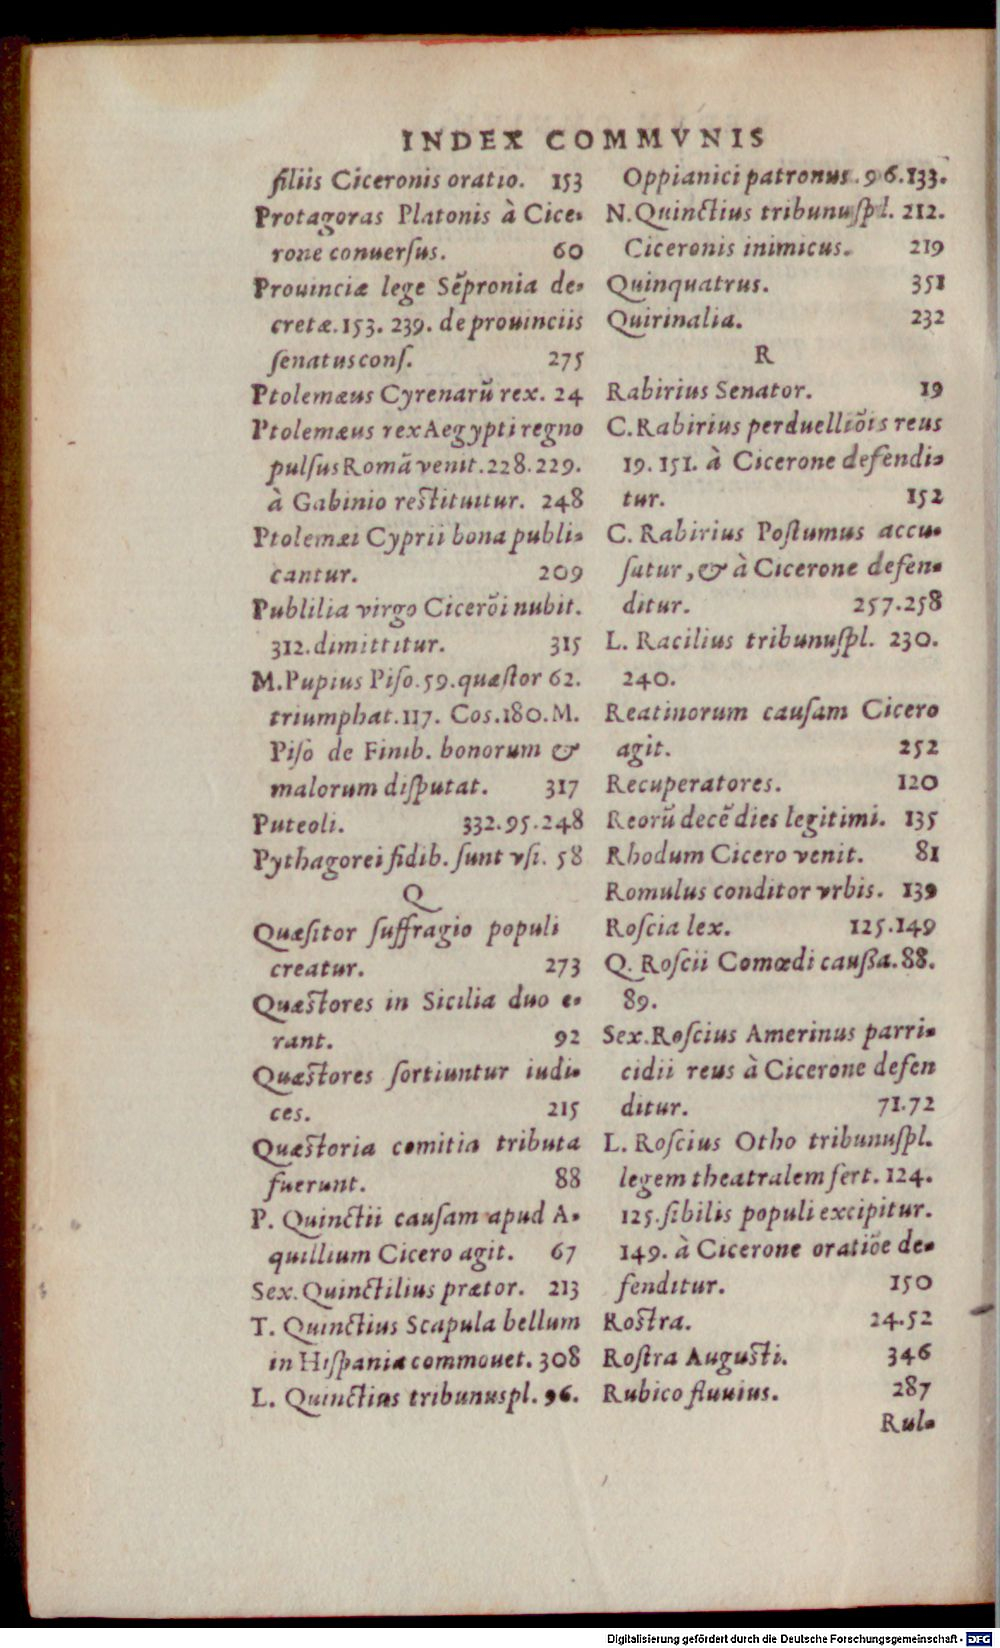 INDEX COMMVNIS
filiis Ciceronis oratio. 153
Protagoras Platonis à Cice-
rone conuerſus. 60
Prouinciæ lege Sẽpronia de-
cretæ. 153. 239. de prouinciis
ſenatusconſ. 275
Ptolemæus Cyrenarũ rex. 24
Ptolemæus rex Aegypti regno
pulſus Romã venit. 228. 229.
à Gabinio reſtituitur. 248
Ptolemæi Cyprii bona publi-
cantur. 209
Publilia virgo Cicerõi nubit.
312. dimittitur. 315
M. Pupius Piſo. 59. quæſtor 62.
triumphat. 117. Cos. 180. M.
Piſo de Finib. bonorum &
malorum diſputat. 317
Puteoli. 332. 95. 248
Pythagorei fidib. ſunt vſi. 58
Q
Quæſitor ſuffragio populi
creatur. 273
Quæſtores in Sicilia duo e-
rant. 92
Quæſtores ſortiuntur iudi-
ces. 215
Quæſtoria comitia tributa
fuerunt. 88
P. Quinctii cauſam apud A-
quillium Cicero agit. 67
Sex. Quinctilius prætor. 213
T. Quinctius Scapula bellum
in Hiſpania commouet. 308
L. Quinctius tribunuspl. 96.
Oppianici patronus. 96. 133.
N. Quinctius tribunuſpl. 212.
Ciceronis inimicus. 219
Quinquatrus. 351
Quirinalia. 232
R
Rabirius Senator. 19
C. Rabirius perduelliõis reus
19. 151. à Cicerone defendi-
tur. 152
C. Rabirius Poſtumus accu-
ſatur, & à Cicerone defen-
ditur. 257. 258
L. Racilius tribunuſpl. 230.
240.
Reatinorum cauſam Cicero
agit. 252
Recuperatores. 120
Reorũ decẽ dies legitimi. 135
Rhodum Cicero venit. 81
Romulus conditor vrbis. 139
Roſcia lex. 125. 149
Q. Roſcii Comœdi caußa. 88.
89.
Sex. Roſcius Amerinus parri-
cidii reus à Cicerone defen
ditur. 71. 72
L. Roſcius Otho tribunuſpl.
legem theatralem fert. 124.
125. ſibilis populi excipitur.
149. à Cicerone oratiõe de-
fenditur. 150
Roſtra. 24. 52
Roſtra Auguſti. 346
Rubico fluuius. 287
Rul-
Digitalisierung gefördert durch die Deutsche Forschungsgemeinschaft - DFG